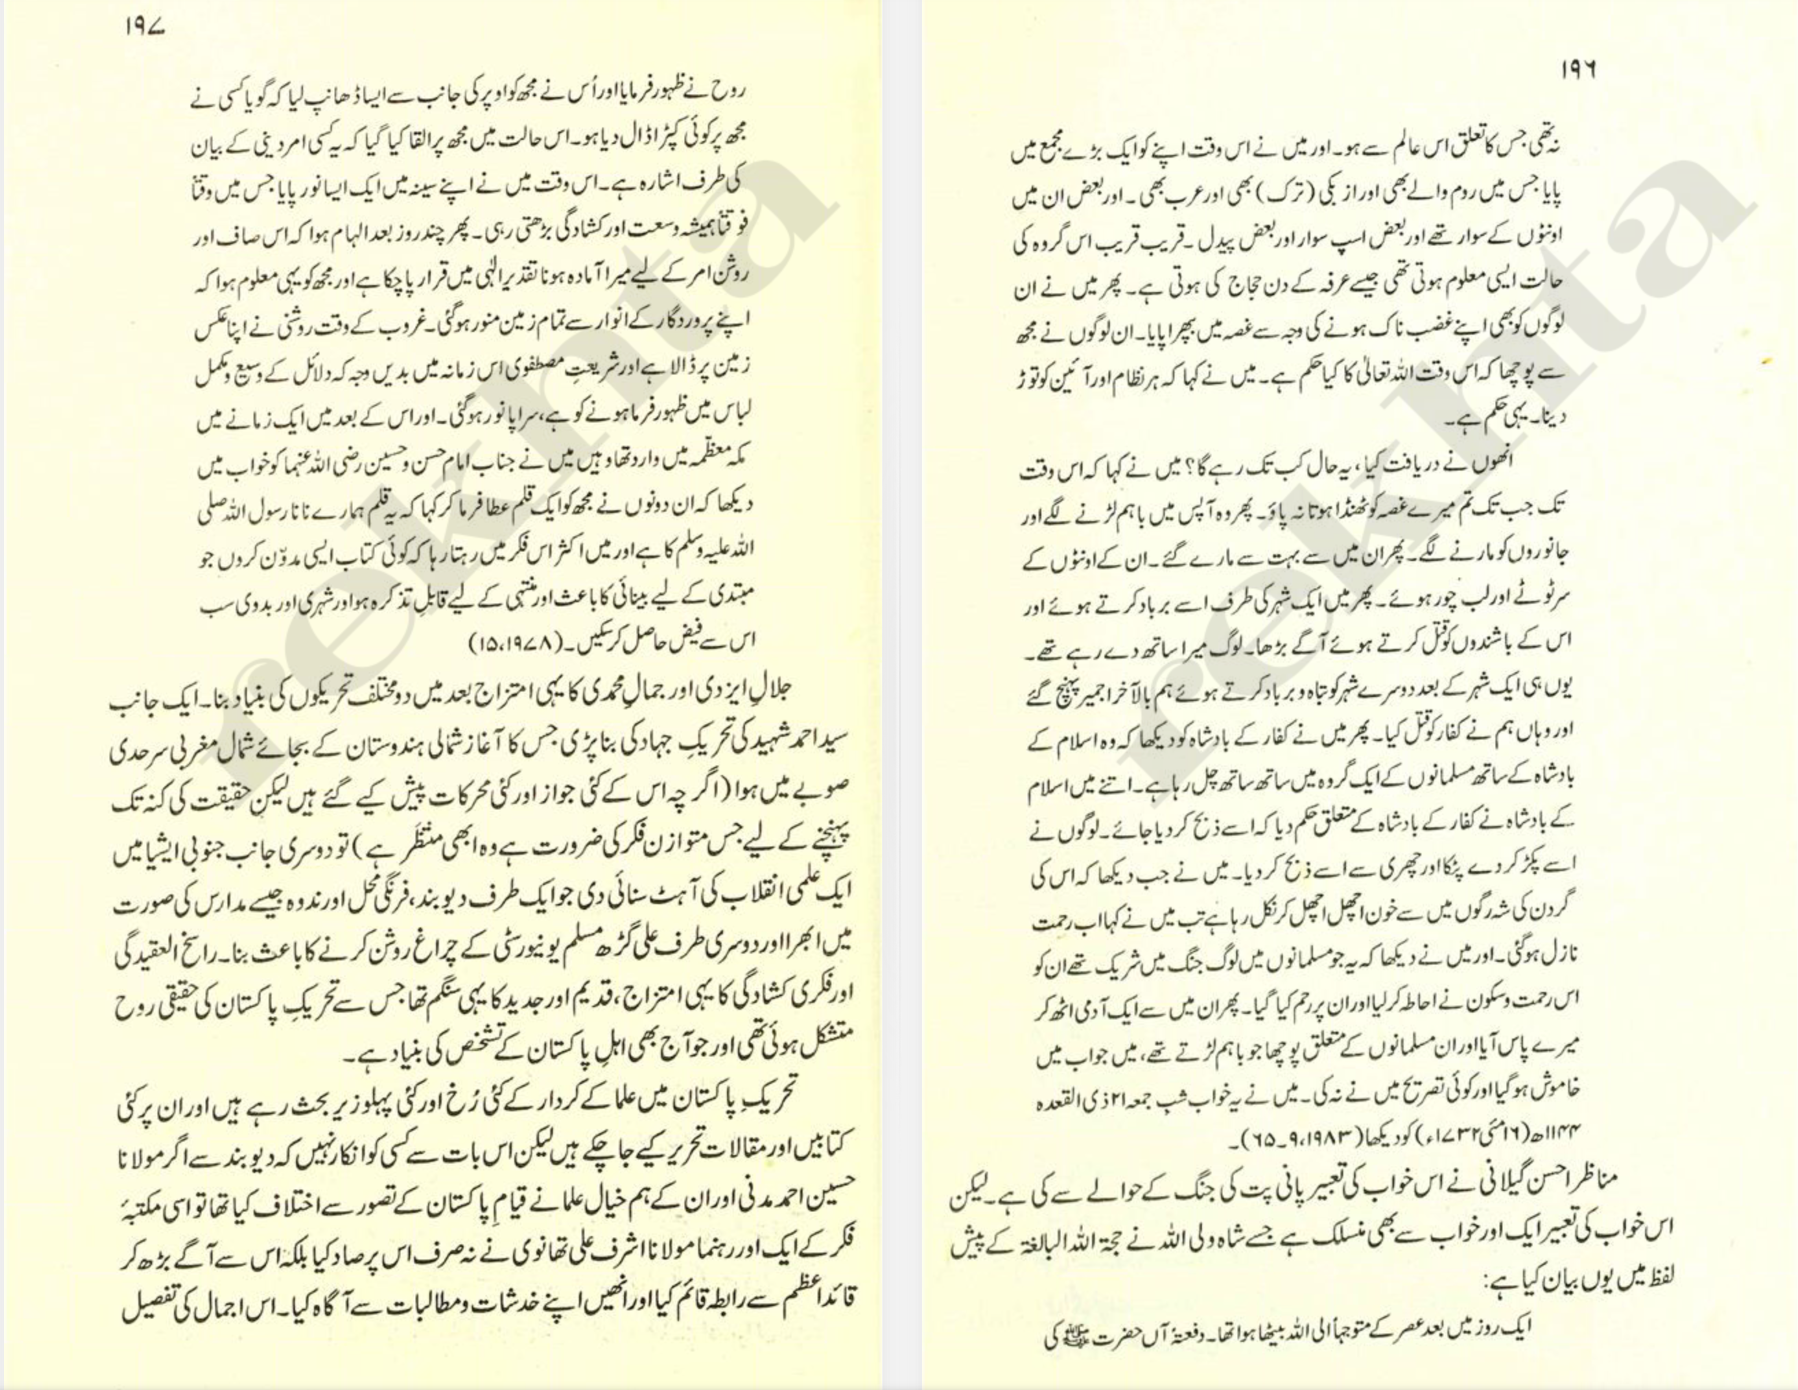 ۱۹۶
نہ تھی جس کا تعلق اس عالم سے ہو۔ اور میں نے اس وقت اپنے کو ایک بڑے مجمع میں
پایا جس میں روم والے بھی اور ازبکی (ترک) بھی اور عرب بھی۔ اور بعض ان میں
اونٹوں کے سوار تھے اور بعض اسپ سوار اور بعض پیدل۔ قریب قریب اس گروہ کی
حالت ایسی معلوم ہوتی تھی جیسے عرفہ کے دن حجاج کی ہوتی ہے۔ پھر میں نے ان
لوگوں کو بھی اپنے غضب ناک ہونے کی وجہ سے غصہ میں بھرا پایا۔ ان لوگوں نے مجھ
سے پوچھا کہ اس وقت اللہ تعالیٰ کا کیا حکم ہے۔ میں نے کہا کہ ہر نظام اور آئین کو توڑ
دینا۔ یہی حکم ہے۔
انھوں نے دریافت کیا، یہ حال کب تک رہے گا؟ میں نے کہا کہ اس وقت
تک جب تک تم میرے غصہ کو ٹھنڈا ہوتا نہ پاؤ۔ پھر وہ آپس میں باہم لڑنے لگے اور
جانوروں کو مارنے لگے۔ پھر ان میں سے بہت سے مارے گئے۔ ان کے اونٹوں کے
سر ٹوٹے اور لب چور ہوئے۔ پھر میں ایک شہر کی طرف اسے برباد کرتے ہوئے اور
اس کے باشندوں کو قتل کرتے ہوئے آگے بڑھا۔ لوگ میرا ساتھ دے رہے تھے۔
یوں ہی ایک شہر کے بعد دوسرے شہر کو تباہ و برباد کرتے ہوئے ہم بالآخر اجمیر پہنچ گئے
اور وہاں ہم نے کفار کو قتل کیا۔ پھر میں نے کفار کے بادشاہ کو دیکھا کہ وہ اسلام کے
بادشاہ کے ساتھ مسلمانوں کے ایک گروہ میں ساتھ ساتھ چل رہا ہے۔ اتنے میں اسلام
کے بادشاہ نے کفار کے بادشاہ کے متعلق حکم دیا کہ اسے ذبح کر دیا جائے۔ لوگوں نے
اسے پکڑ کر دے پٹکا اور چھری سے اسے ذبح کر دیا۔ میں نے جب دیکھا کہ اس کی
گردن کی شہ رگوں میں سے خون اچھل اچھل کر نکل رہا ہے تب میں نے کہا اب رحمت
نازل ہوگئی۔ اور میں نے دیکھا کہ یہ جو مسلمانوں میں لوگ جنگ میں شریک تھے ان کو
اس رحمت و سکون نے احاطہ کر لیا اور ان پر رحم کیا گیا۔ پھر ان میں سے ایک آدمی اٹھ کر
میرے پاس آیا اور ان مسلمانوں کے متعلق پوچھا جو باہم لڑتے تھے، میں جواب میں
خاموش ہوگیا اور کوئی تصریح میں نے نہ کی۔ میں نے یہ خواب شبِ جمعہ ۲۱ ذی القعدہ
۱۱۴۴ھ (۱۶ مئی ۱۷۳۲ء) کو دیکھا (۱۹۸۳، ۹۔۶۵)۔
مناظر احسن گیلانی نے اس خواب کی تعبیر پانی پت کی جنگ کے حوالے سے کی ہے۔ لیکن
اس خواب کی تعبیر ایک اور خواب سے بھی منسلک ہے جسے شاہ ولی اللہ نے حجۃ اللہ البالغۃ کے پیش
لفظ میں یوں بیان کیا ہے:
ایک روز میں بعد عصر کے متوجہاً الی اللہ بیٹھا ہوا تھا۔ دفعۃً آں حضرت ﷺ کی
۱۹۷
روح نے ظہور فرمایا اور اُس نے مجھ کو اوپر کی جانب سے ایسا ڈھانپ لیا کہ گویا کسی نے
مجھ پر کوئی کپڑا ڈال دیا ہو۔ اس حالت میں مجھ پر القا کیا گیا کہ یہ کسی امر دینی کے بیان
کی طرف اشارہ ہے۔ اس وقت میں نے اپنے سینہ میں ایک ایسا نور پایا جس میں وقتاً
فوقتاً ہمیشہ وسعت اور کشادگی بڑھتی رہی۔ پھر چند روز بعد الہام ہوا کہ اس صاف اور
روشن امر کے لیے میرا آمادہ ہونا تقدیرِ الٰہی میں قرار پا چکا ہے اور مجھ کو یہی معلوم ہوا کہ
اپنے پروردگار کے انوار سے تمام زمین منور ہوگئی۔ غروب کے وقت روشنی نے اپنا عکس
زمین پر ڈالا ہے اور شریعتِ مصطفوی اس زمانہ میں بدیں وجہ کہ دلائل کے وسیع و مکمل
لباس میں ظہور فرما ہونے کو ہے، سراپا نور ہوگئی۔ اور اس کے بعد میں ایک زمانے میں
مکہ معظّمہ میں وارد تھا وہیں میں نے جناب امام حسن و حسین رضی اللہ عنہما کو خواب میں
دیکھا کہ ان دونوں نے مجھ کو ایک قلم عطا فرما کر کہا کہ یہ قلم ہمارے نانا رسول اللہ صلی
اللہ علیہ وسلم کا ہے اور میں اکثر اس فکر میں رہتا رہا کہ کوئی کتاب ایسی مدوّن کروں جو
مبتدی کے لیے بینائی کا باعث اور منتہی کے لیے قابلِ تذکرہ ہو اور شہری اور بدوی سب
اس سے فیض حاصل کر سکیں۔ (۱۹۷۸، ۱۵)
جلالِ ایزدی اور جمالِ محمدی کا یہی امتزاج بعد میں دو مختلف تحریکوں کی بنیاد بنا۔ ایک جانب
سید احمد شہید کی تحریکِ جہاد کی بنا پڑی جس کا آغاز شمالی ہندوستان کے بجائے شمال مغربی سرحدی
صوبے میں ہوا (اگرچہ اس کے کئی جواز اور کئی محرکات پیش کیے گئے ہیں لیکن حقیقت کی کنہ تک
پہنچنے کے لیے جس متوازن فکر کی ضرورت ہے وہ ابھی منتظر ہے) تو دوسری جانب جنوبی ایشیا میں
ایک علمی انقلاب کی آہٹ سنائی دی جو ایک طرف دیوبند، فرنگی محل اور ندوہ جیسے مدارس کی صورت
میں ابھرا اور دوسری طرف علی گڑھ مسلم یونیورسٹی کے چراغ روشن کرنے کا باعث بنا۔ راسخ العقیدگی
اور فکری کشادگی کا یہی امتزاج، قدیم اور جدید کا یہی سنگم تھا جس سے تحریکِ پاکستان کی حقیقی روح
متشکل ہوئی تھی اور جو آج بھی اہلِ پاکستان کے تشخص کی بنیاد ہے۔
تحریکِ پاکستان میں علما کے کردار کے کئی رُخ اور کئی پہلو زیرِ بحث رہے ہیں اور ان پر کئی
کتابیں اور مقالات تحریر کیے جا چکے ہیں لیکن اس بات سے کسی کو انکار نہیں کہ دیوبند سے اگر مولانا
حسین احمد مدنی اور ان کے ہم خیال علما نے قیامِ پاکستان کے تصور سے اختلاف کیا تھا تو اسی مکتبۂ
فکر کے ایک اور رہنما مولانا اشرف علی تھانوی نے نہ صرف اس پر صاد کیا بلکہ اس سے آگے بڑھ کر
قائداعظم سے رابطہ قائم کیا اور انھیں اپنے خدشات و مطالبات سے آگاہ کیا۔ اس اجمال کی تفصیل
rekhta
rekhta